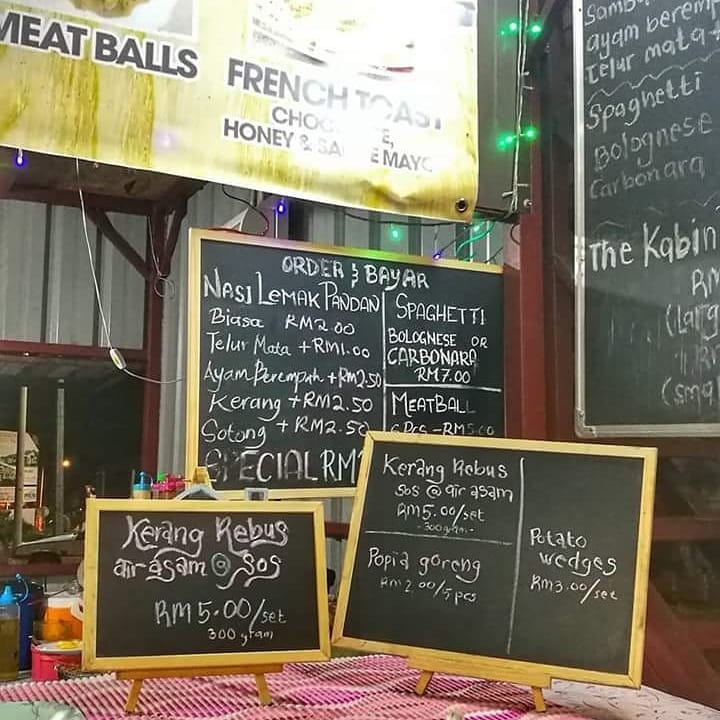 MEAT BALLS
FRENCH TOAST
HONEY & MAYO
Sambal
ayam beremp
telur mata
Spaghetti
Bolognese
Carbonara
The Kabin
RM
ORDER & BAYAR
NASI LEMAK PANDAN
Biasa RM2.00
Telur Mata +RM1.00
Ayam Berempah +RM2.50
Kerang +RM2.50
Sotong +RM2.50
SPECIAL RM
SPAGHETTI
BOLOGNESE OR
CARBONARA
RM7.00
MEATBALL
6 PCS - RM5.00
Kerang Rebus
air asam @ Sos
RM5.00/set
300 gram
Kerang Rebus
sos @ air asam
RM5.00/set
-300gram-
Popia goreng
RM2.00/5 pcs
Potato
wedges
RM3.00/set